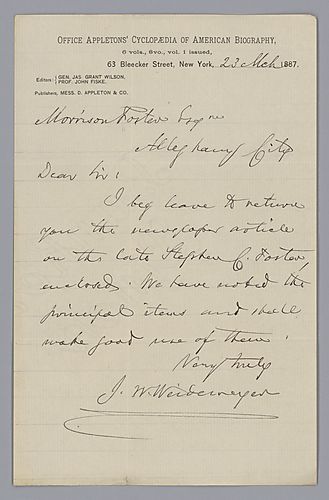 OFFICE APPLETONS' CYCLOPÆDIA OF AMERICAN BIOGRAPHY,
6 vols., 8vo., vol. 1 issued,
63 Bleecker Street, New York, 23 Mch 1887.
Editors: GEN. JAS GRANT WILSON, PROF. JOHN FISKE.
Publishers, MESS. D. APPLETON & CO.
Morrison Foster Esqre
Alleghany City
Dear Sir:
I beg leave to return
you the newspaper article
on the late Stephen C. Foster,
enclosed. We have noted the
principal items and shall
make good use of them.
Very truly
J. W. Weidemeyer